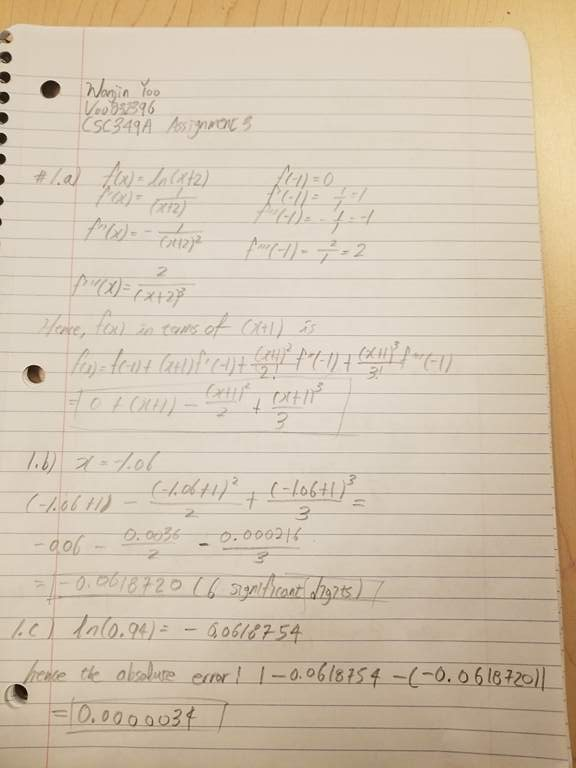 Wanjin Yoo
CSC349A Assignment 3
#1.a) f(x) = ln(x+2) f(-1) = 0
f'(x) = 1/(x+2) f'(-1) = 1/1 = 1
f''(x) = - 1/(x+2)² f''(-1) = - 1/1 = -1
f'''(x) = 2/(x+2)³ f'''(-1) = 2/1 = 2
Hence, f(x) in terms of (x+1) is
f(x) = f(-1) + (x+1)f'(-1) + (x+1)²/2! f''(-1) + (x+1)³/3! f'''(-1)
= 0 + (x+1) - (x+1)²/2 + (x+1)³/3
1.b) x = -1.06
(-1.06+1) - (-1.06+1)²/2 + (-1.06+1)³/3 =
-0.06 - 0.0036/2 - 0.000216/3
= -0.0618720 (6 significant digits)
1.c) ln(0.94) = - 0.0618754
hence the absolute error! | -0.0618754 - (-0.0618720)|
= 0.0000034